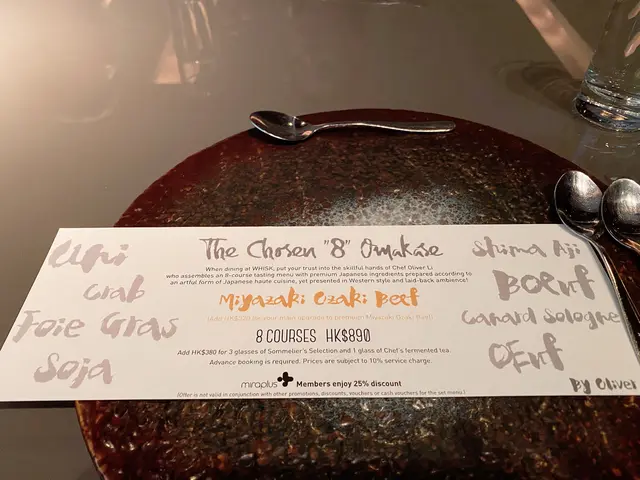 Uni
Crab
Foie Gras
Soja
The Chosen "8" Omakase
When dining at WHISK, put your trust into the skillful hands of Chef Oliver Li
who assembles an 8-course tasting menu with premium Japanese ingredients prepared according to
an artful form of Japanese haute cuisine, yet presented in Western style and laid-back ambience!
Miyazaki Ozaki Beef
8 COURSES HK$890
Add HK$380 for 3 glasses of Sommelier's Selection and 1 glass of Chef's fermented tea.
Advance booking is required. Prices are subject to 10% service charge.
miraplus Members enjoy 25% discount
(Offer is not valid in conjunction with other promotions, discounts, vouchers or cash vouchers for the set menu.)
Shima Aji
Boeuf
Canard Sologne
OEuf
By Oliver